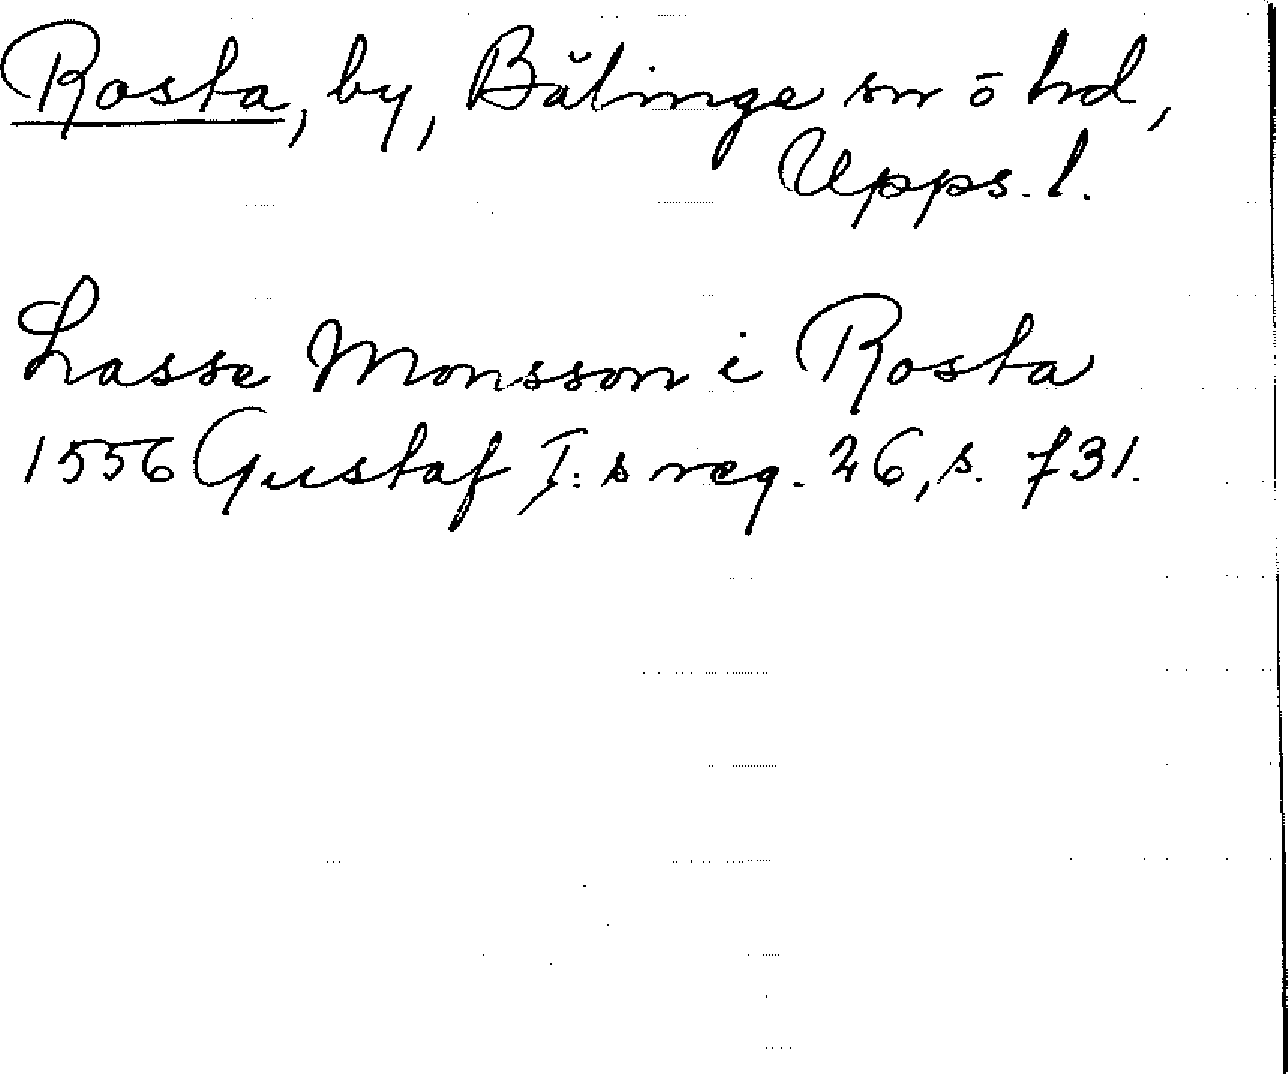 Rosta, by, Bälinge sn o hd,
Upps. l.
Lasse Monsson i Rosta
1556 Gustaf I:s reg. 26, s. 731.